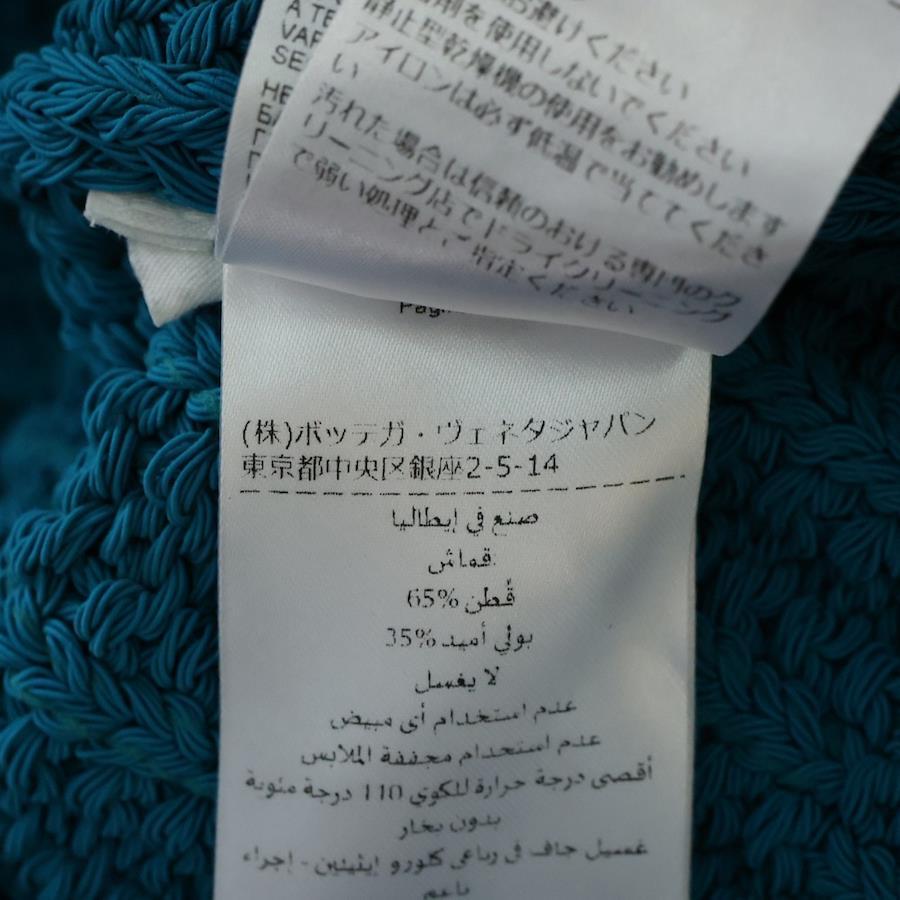 A TE
VAP
SE
HE
お避けください
剤を使用しないでください
静止型乾燥機の使用をお勧めします
アイロンは必ず低温で当ててくださ
い
汚れた場合は信頼のおける専門のク
リーニング店でドライクリーニング
で弱い処理とご指定ください
(株)ボッテガ・ヴェネタジャパン
東京都中央区銀座2-5-14
صنع في إيطاليا
قماش
قُطن 65%
بولي أميد 35%
لا يغسل
عدم استخدام أي مبيض
عدم استخدام مجففة الملابس
أقصى درجة حرارة للكوي 110 درجة مئوية
بدون بخار
غسيل جاف في رباعي كلورو إيثيلين - إجراء
ناعم